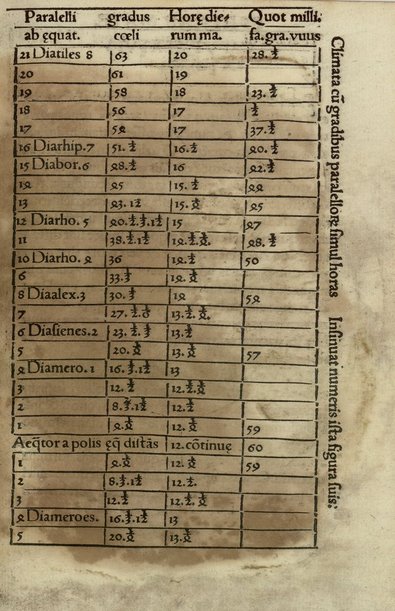 Paralelli gradus Horę die⸗ Quot milli.
ab ęquat. cœli rum ma. fa.gra.vuus
21 Diatiles 8 63 20 28. ½
20 61 19
19 58 18 23. ½
18 56 17 ½
17 5ꝛ 17 37. ½
16 Diarhip.7 51. ½ 16. ½ ꝛ0. ½
15 Diabor.6 ꝛ8. ½ 16 ꝛ2. ½
1ꝛ ꝛ5 15. ½ ꝛꝛ
13 15.
12 Diarho. 5 15 ꝛ7
11 ꝛ8. ½
10 Diarho. ꝛ 36 1ꝛ. ½ 50
6 33. 1ꝛ.
8 Diaalex.3 30. 1ꝛ 5ꝛ
7 27. 13. ½.
6 Diasienes.2 23. 13. ½
5 20. 13. 57
ꝛ Diamero.1 16. 13
3 12. ½ 12. ½.
2 8. 12. ½
1 ꝛ. 12. 59
Aeq̃tor a polis ęq̃ distãs 12.cõtinuę 60
1 ꝛ. 12. 59
2 8. 12. ½.
3 12. ½ 12. ½.
ꝛ Diameroes. 16. 13
5 20. 13.
Climata cũ gradibus paralellorꝝ simul horas Insinuat numeris ista figura suis: